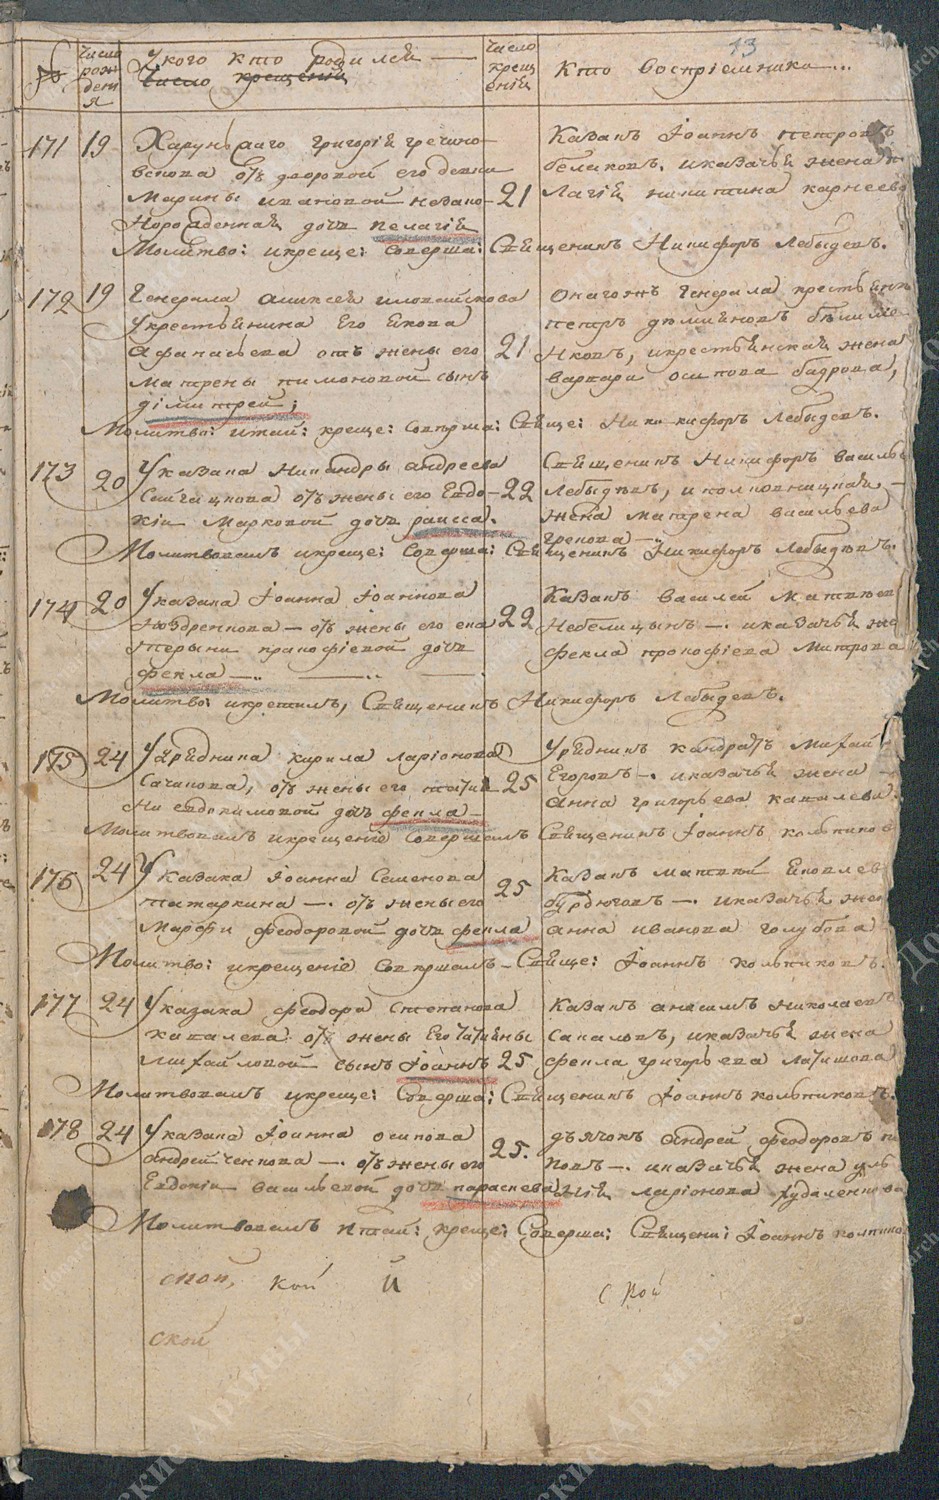 13
№ число рождения У кого кто родился число крещенія Кто воспріемники
число крещеній
171 19 Хорунжаго Григорія Гречино-
венова отъ дворовой его девки
Марины Ивановой незако-
норожденная дочь Пелагія
21
Казакъ Іоаннъ Петровъ
Беликовъ. и казачья жена
лагія Никитина Карнеева
Молитво: и креще: соверша: Священникъ Никифоръ Лебыдевъ.
172 19 Генерала Аликсея Иловайскова
у крестьянина его Якова
Афанасьева отъ жены его
Матрены Пимоновой сынъ
Діметрей;
21
Онагожъ генерала крестьян
Петръ
нковъ, и крестьянская жена
Варвара Осипова
Молитво: и таи: креще: соверша: Свяще: Никифоръ Лебыдевъ.
173 20 У казака Никандры Андреева
отъ жены его Евдо-
кіи Марковой дочь Раисса.
22
Священникъ Никифоръ Василье
Лебыдевъ, и полковницкая
жена Матрена Васильева
Грекова
Молитвовалъ и креще: соверша: Священникъ Никифоръ Лебыдевъ.
174 20 У казака Іоанна Іоаннова
Ноздренкова — отъ жены его Ека
терины Пракофіевой дочь
Фекла
22
Казакъ Василей Матвеев
Небелицынъ —. и казачья же
Фекла Прокофіева Митрова
Молитво: и крестилъ, Священникъ Никифоръ Лебыдевъ.
175 24 Урядника Кирила Ларіонова
Сачинова, отъ жены его Татия
ни Евдокимовой дочь Фекла
25
Урядникъ Кондратъ Михай
Егоровъ —. и казачья жена
Анна Григорьева Каталева.
Молитвовалъ и крещеніе совершалъ Священникъ Іоаннъ Кольпиков
176 24 У казака Іоанна Семенова
Татаркина —. отъ жены его
Марфи Феодоровой дочь Фекла
25
Казакъ Матвей Яковлев
Бурдюговъ —. и казачья жен
Анна Иванова Голубова
Молитво: и крещеніе совершалъ Свяще: Іоаннъ Кольпиковъ.
177 24 У казака Феодора Степанова
Каталева отъ жены его Татияны
Михайловой сынъ Іоаннъ
25
Казакъ Анисимъ Николаевъ
и казачья жена
Фекла Григорьева Латишова
Молитвовалъ и креще: соверша: Священникъ Іоаннъ Кольпиковъ.
178 24 У казака Іоанна Осипова
Андрейченкова —. отъ жены его
Евдокіи Васильевой дочь Параскева
25.
Дьячокъ Андрей Феодоровъ По
повъ —. и казачья жена Уль
янія Ларіонова
Молитвовалъ и таи: креще: соверша: Священи: Іоаннъ Колпико
ской, кой й с кой
ской